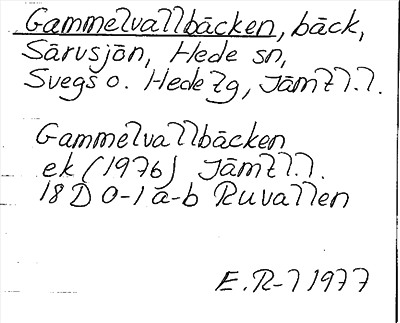 Gammelvallbäcken, bäck,
Särvsjön, Hede sn,
Svegs o. Hede tg, Jämtl.l.
Gammelvallbäcken
ek (1976) Jämtl.l.
18 D 0-1 a-b Ruvallen
E.R-l 1977